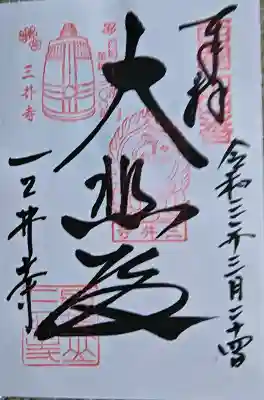 奉拝
令和三年三月二十四日
大悲殿
三井寺
三井寺